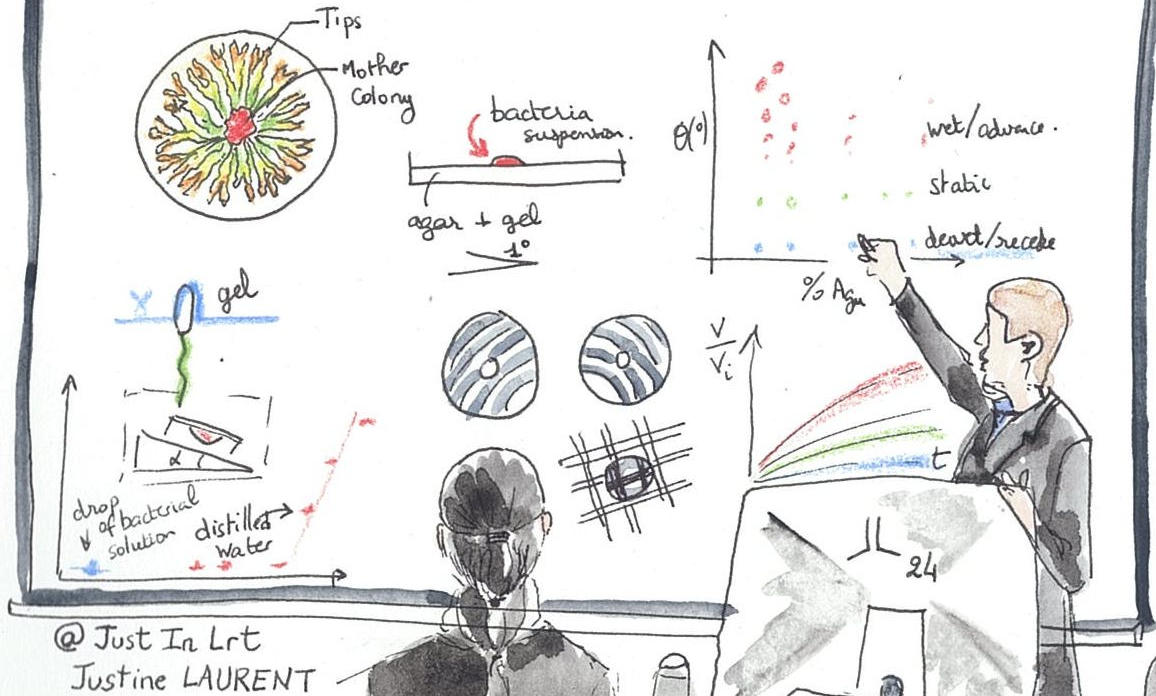 Tips
Mother
Colony
bacteria
suspension.
agar + gel
1°
θ(°)
wet/advance.
static
dewet/recede
% Agar
X gel
V
Vi
t
α
drop
of bacterial
solution
distilled
water
24
@ Just In Lrt
Justine LAURENT